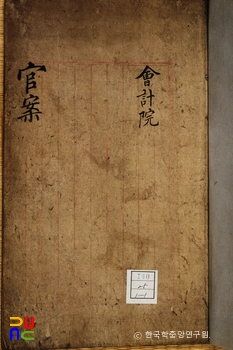 會計院
官案
© 한국학중앙연구원